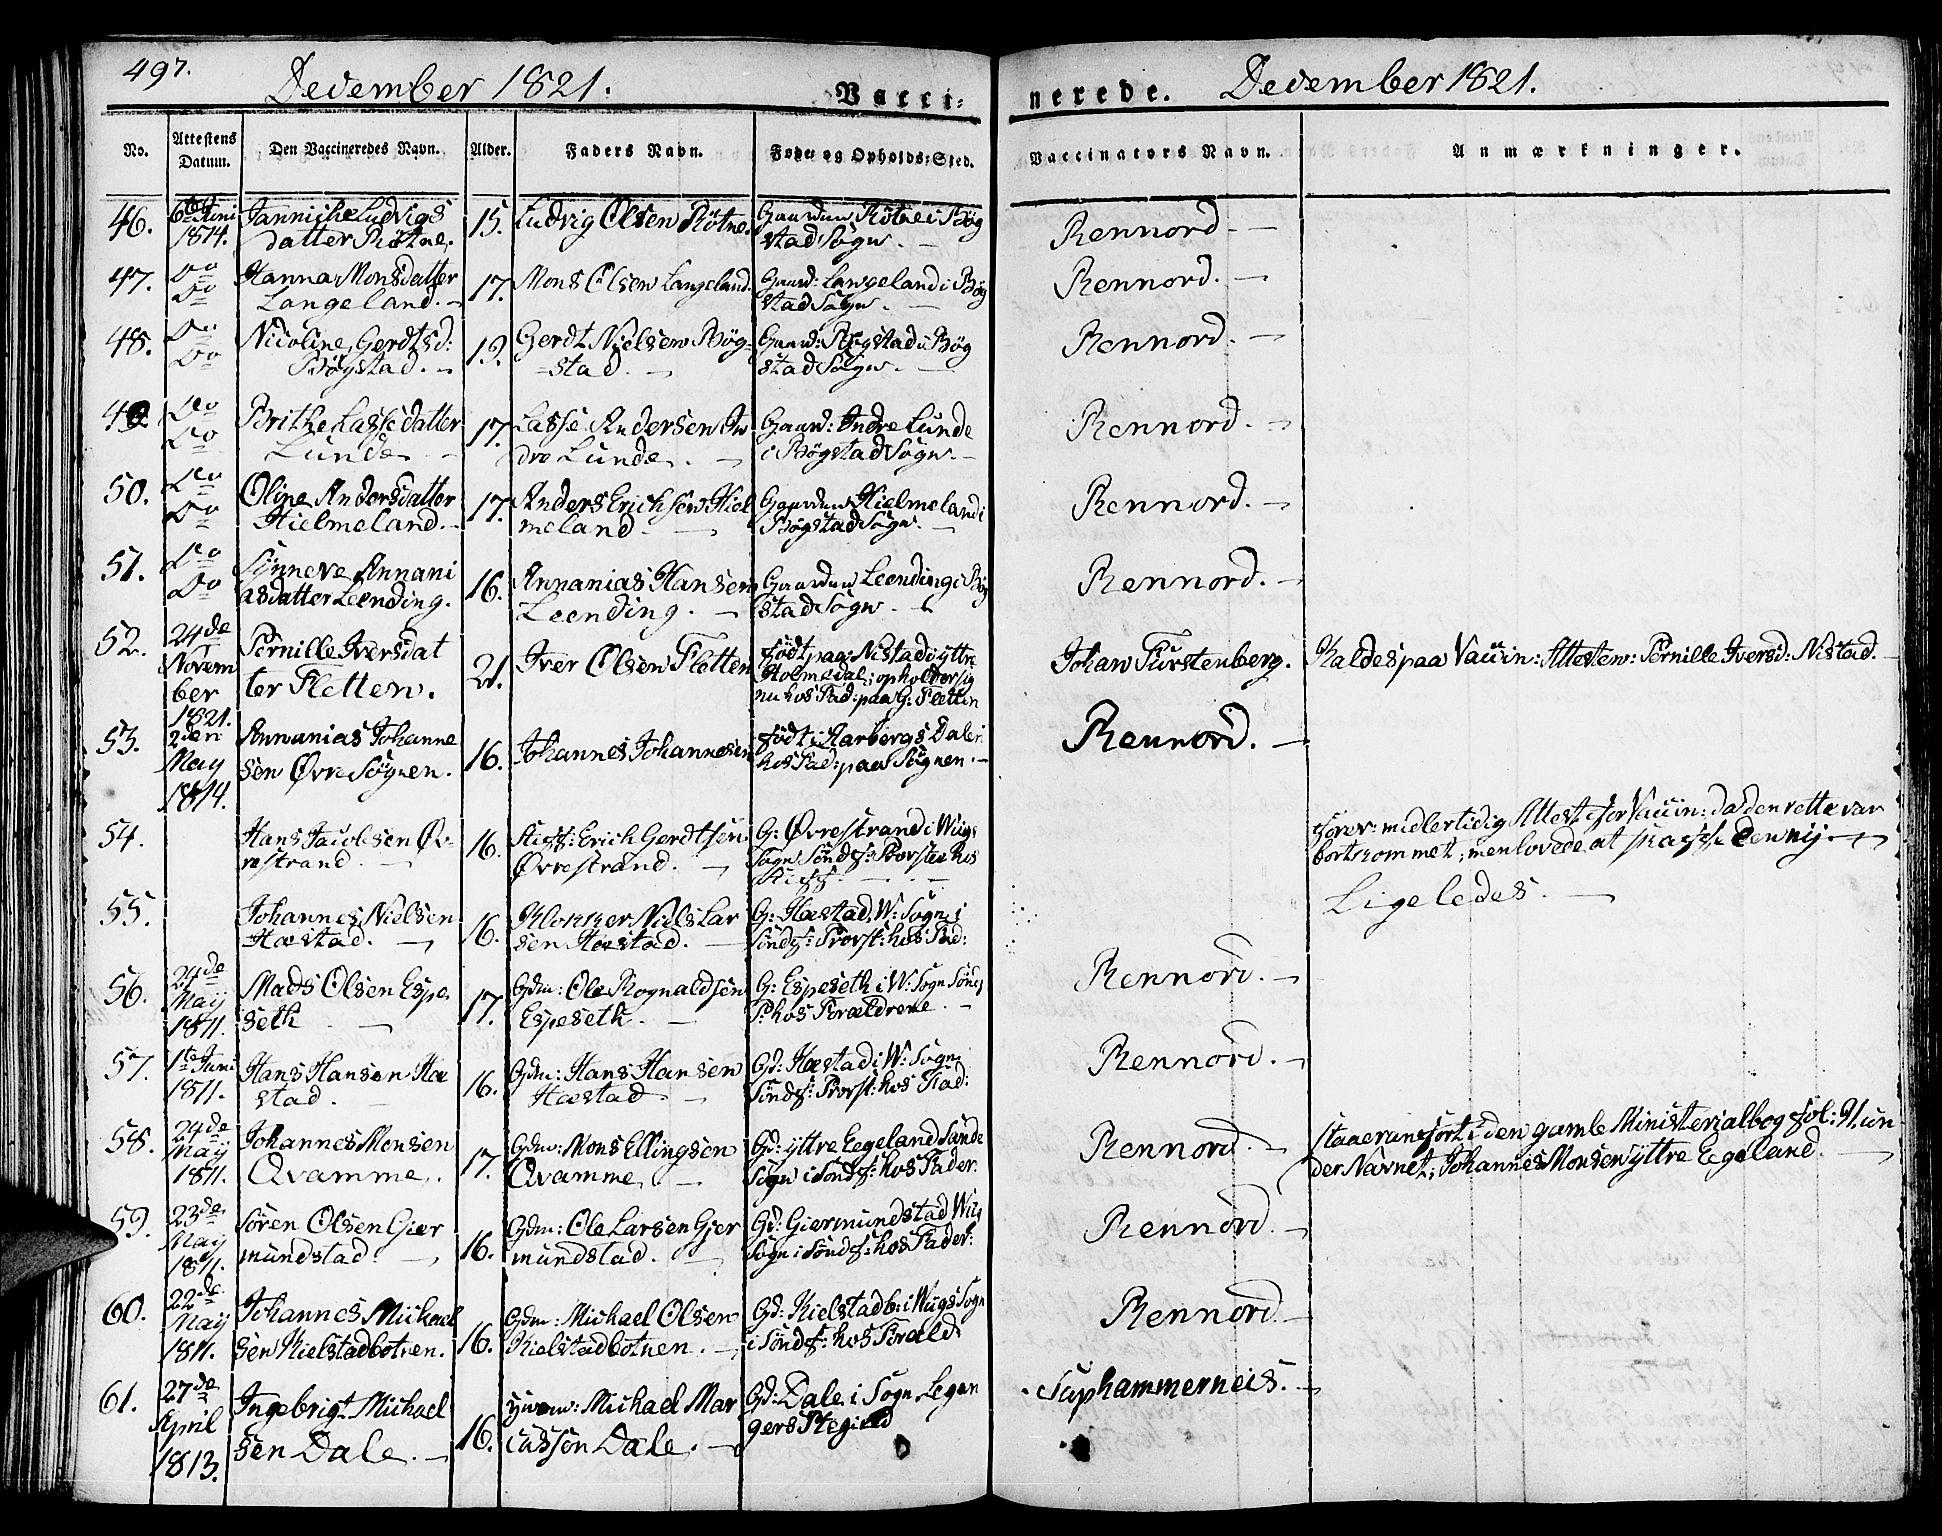 497.
December 1821.
Vacci-
nerede.
December 1821.
No.
Attestens Datum.
Den Vaccineredes Navn.
Alder.
Faders Navn.
Føde og Opholds-Sted.
Vaccinators Navn.
Anmærkninger.
46.
6te Juni
1814.
Jannicke Ludvigs
datter Røtne.
15.
Ludvig Olsen Røtne.
Gaarden Røtne i Bøg
stad Sogn. —
Rennord. —
47.
Do
Do
Hanna Monsdatter
Langeland. —
17.
Mons Olsen Langeland.
Gaard: Langeland i Bøg
stad Sogn. —
Rennord. —
48.
Do
Do
Nicoline Gerdtsd:
Bøgstad. —
19.
Gerdt Nielsen Bøg-
-stad. —
Gaard: Bøgstad i Bøg
stad Sogn. —
Rennord. —
49
Do
Do
Brithe Lassedatter
Lunde. —
17.
Lasse Andersen In
dre Lunde. —
Gaard: Indre Lunde
i Bøgstad Sogn. —
Rennord. —
50.
Do
Do
Oline Andersdatter
Hielmeland. —
17.
Anders Erichsen Hiel
meland —
Gaarden Hielmeland i
Bøgstad Sogn. —
Rennord. —
51.
Do
Do
Synneve Annani
asdatter Leending.
16.
Annanias Hansen
Leending. —
Gaarden Leending i Bøg
stad Sogn. —
Rennord. —
52.
24de
Novem
ber
1821.
Pernille Iversdat
ter Fletten.
21.
Iver Olsen Fletten
født paa Nistad i yttre
Holmedal; opholder sig
nu hos Fad: paa G: Fletten
Johan Fürstenberg.
Kaldes paa Vaccin: Attesten: Pernille Iversd: Nistad. —
53.
2den
May
1814.
Annanias Johanne
sen Øvre Søgnen.
16.
Johannes Johannesen
født i Aarbergs Dalen
hos Fad: paa Søgnen. —
Rennord. —
54.
Hans Jacobsen Øv-
restrand. —
16.
Stiff: Erich Gerdtsen
Øvrestrand. —
G: Øvrestrand i Wiigs
Sogn Søndf: Provstie hos
Stiff. —
forev: midlertidig Attest for Vaccin: da den rette var
bortkommet; men lovede at skaffe den nij. —
55.
Johannes Nielsen
Hæstad. —
16.
Klokker Niels Lar
sen Hæstad. —
G: Hæstad, W: Sogn i
Søndf: Provst: hos Fad:
Ligeledes. —
56.
24de
Maij
1811.
Mads Olsen Espe
seth —
17.
Gdm: Ole Rognaldsen
Espeseth. —
G: Espeseth i W: Sogn Søndf
P: hos Forældrene. —
Rennord. —
57.
1te Juni
1811.
Hans Hansen Hæ
stad. —
16.
Gdm: Hans Hansen
Hæstad —
Gd: Hæstad i W: Sogn
Søndf: Provst: hos Fad:
Rennord. —
58.
24de
May
1811.
Johannes Monsen
Qvamme.
17.
Gdm: Mons Ellingsen
Qvamme. —
Gd: yttre Eegeland Sande
Sogn i Søndf: hos Fader.
Rennord. —
Staaer anført i den gamle Ministerialbog fol: 91. un
der Navnet; Johannes Monsen yttre Eegeland. —
59.
23de
May
1811.
Søren Olsen Gier
mundstad. —
16.
Gdm: Ole Larsen Gier
mundstad. —
Gd: Giermundstad Wiigs
Sogn i Søndf: hos Fader:
Rennord. —
60.
22de
May
1811.
Johannes Michael
sen Kielstadbotnen.
16.
Gdm: Michael Olsen
Kielstadbotnen. —
Gd: Kielstadb: i Wiigs Sogn
i Søndf: hos Foræld:
Rennord. —
61.
27de
April
1813.
Ingebrigt Michael
sen Dale. —
16.
Michael Mar
cussøn Dale. —
Gd: Dale i Sogn Legan
gers Ptegield
Suphammerneis. —